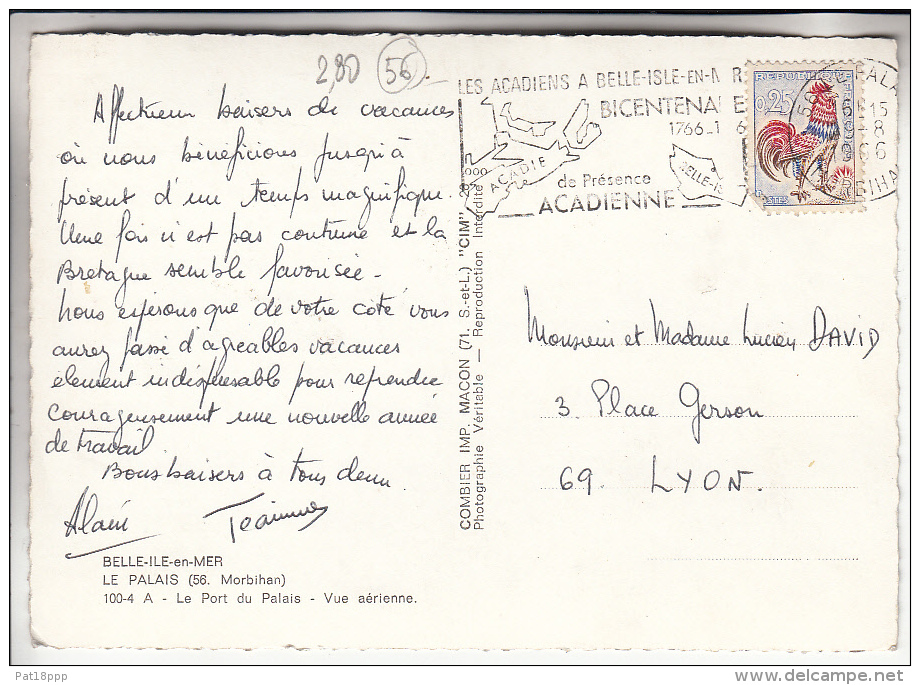 2,80 56
Affectueux baisers de vacances
où nous bénéficions jusqu'à
présent d'un temps magnifique.
Une fois n'est pas coutume et la
Bretagne semble favorisée -
Nous espérons que de votre côté vous
aurez passé d'agréables vacances
élément indispensable pour reprendre
courageusement une nouvelle année
de travail.
Bons baisers à tous deux.
Alain Jeannine
BELLE-ILE-en-MER
LE PALAIS (56. Morbihan)
100-4 A - Le Port du Palais - Vue aérienne.
COMBIER IMP. MACON (71. S.-et-L.) "CIM"
Photographie Véritable — Reproduction Interdite
LES ACADIENS A BELLE-ISLE-EN-M R
BICENTENAI E
1766_1 6
ACADIE
de Présence
ACADIENNE
BELLE-IS
REPUBLIQUE
0,25
POSTES
15
9-8
MORBIHA
Monsieur et Madame Lucien DAVID
3. Place Gerson
69. LYON.
Pat18ppp
delcampe.net